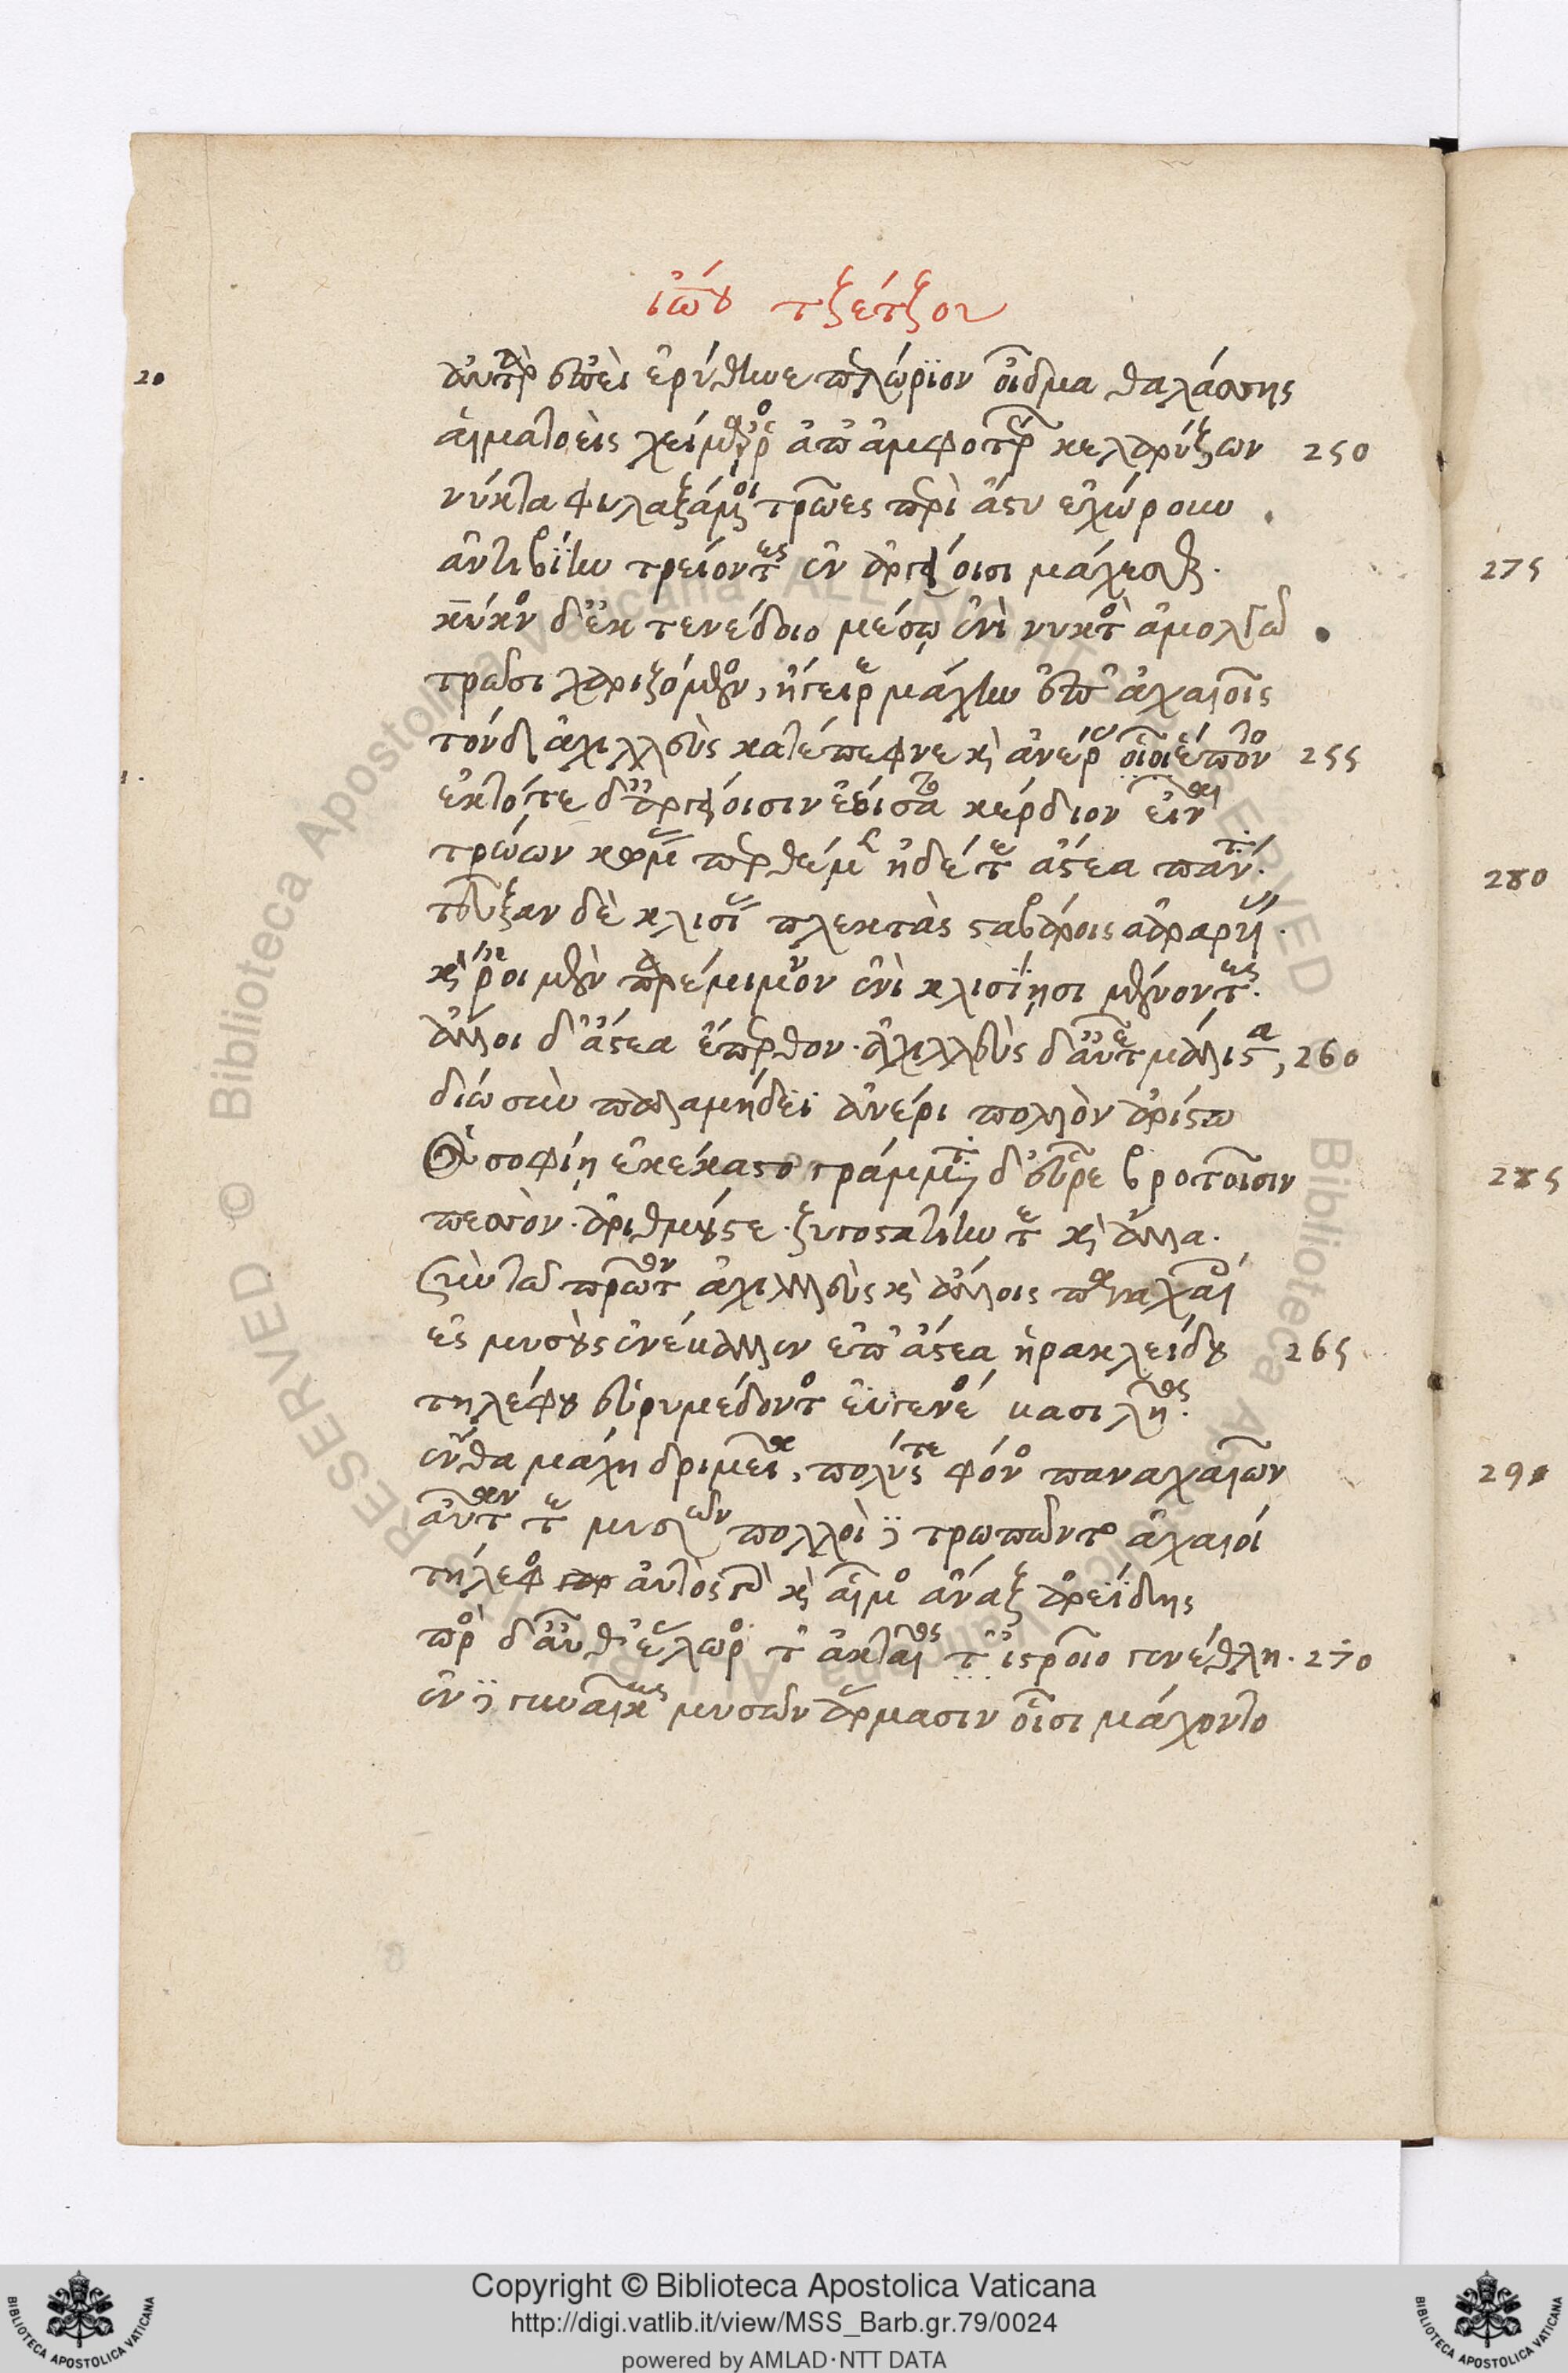 ἰωου τζέτζου
20
αὐτὰρ ἐπεὶ ἐρύθηνε πελώριον οἶδμα θαλάσσης
αἱματόεις χείμαρρος ἀπ' ἀμφοτέρων κελαρύζων 250
νύκτα φυλαξάμενοι τρῶες περὶ ἄστυ ἐχώρουν.
ἀντιβίην τρείοντες ἐν ἀργείοισι μάχεσθαι.
κύκνον δ' ἐκ τενέδοιο μέσῳ ἐνὶ νυκτὸς ἀμολγῶ.
τρωσὶ χαριζόμενον, ἤγειρε μάχην ἐπ' ἀχαιοῖς
τόνδ' ἀχιλλεὺς κατέπεφνε καὶ ἀνέρας οἳ οἱ ἕποντο 255
ἐκ τότε δ' ἀργείοισιν ἐείσατο κέρδιον εἶναι
τρώων κώμας περθέμεν ἠδέ τε ἄστεα πάντα.
τεῦξαν δὲ κλισίας πλεκτὰς σταυροῖς ἀραρυίας.
καί ῥ' οἱ μὲν παρέμιμνον ἐνὶ κλισίῃσι μένοντες.
ἄλλοι δ' ἄστεα ἔπερθον. ἀχιλλεὺς δ' αὖτε μάλιστα, 260
δίω σὺν παλαμήδεϊ ἀνέρι πολλὸν ἀρίστω
Ὃς σοφίῃ ἐκέκαστο γράμματα δ' εὗρε βροτοῖσιν
πεσσὸν. ἀριθμούς τε. ζυγοστατίην τε καὶ ἄλλα.
Σὺν τῶ πρῶτον ἀχιλλεὺς καὶ ἄλλοις παναχαιοῖς
ἐς μυσοὺς ἐνέβαλλεν ἐπ' ἄστεα ἡρακλείδου 265
τηλέφου εὐρυμέδοντος ἐϋγενέος βασιλῆος.
ἔνθα μάχη δριμεῖα, πολύς τε φόνος παναχαιῶν
αὐτῶν τε μυσῶν πολλοὶ γὰρ τρωπῶντο ἀχαιοί
τήλεφος γὰρ αὐτός τε καὶ αἷμος ἄναξ ἀρεΐδης
πρὸς δ' αὖθ' ἕλωρος τ' ἀκταῖος τ' ἴστροιο γενέθλη. 270
ἐν γὰρ γυναῖκες μυσῶν ἅρμασιν οἷσι μάχοντο
275
280
285
290
Copyright © Biblioteca Apostolica Vaticana
http://digi.vatlib.it/view/MSS_Barb.gr.79/0024
powered by AMLAD·NTT DATA